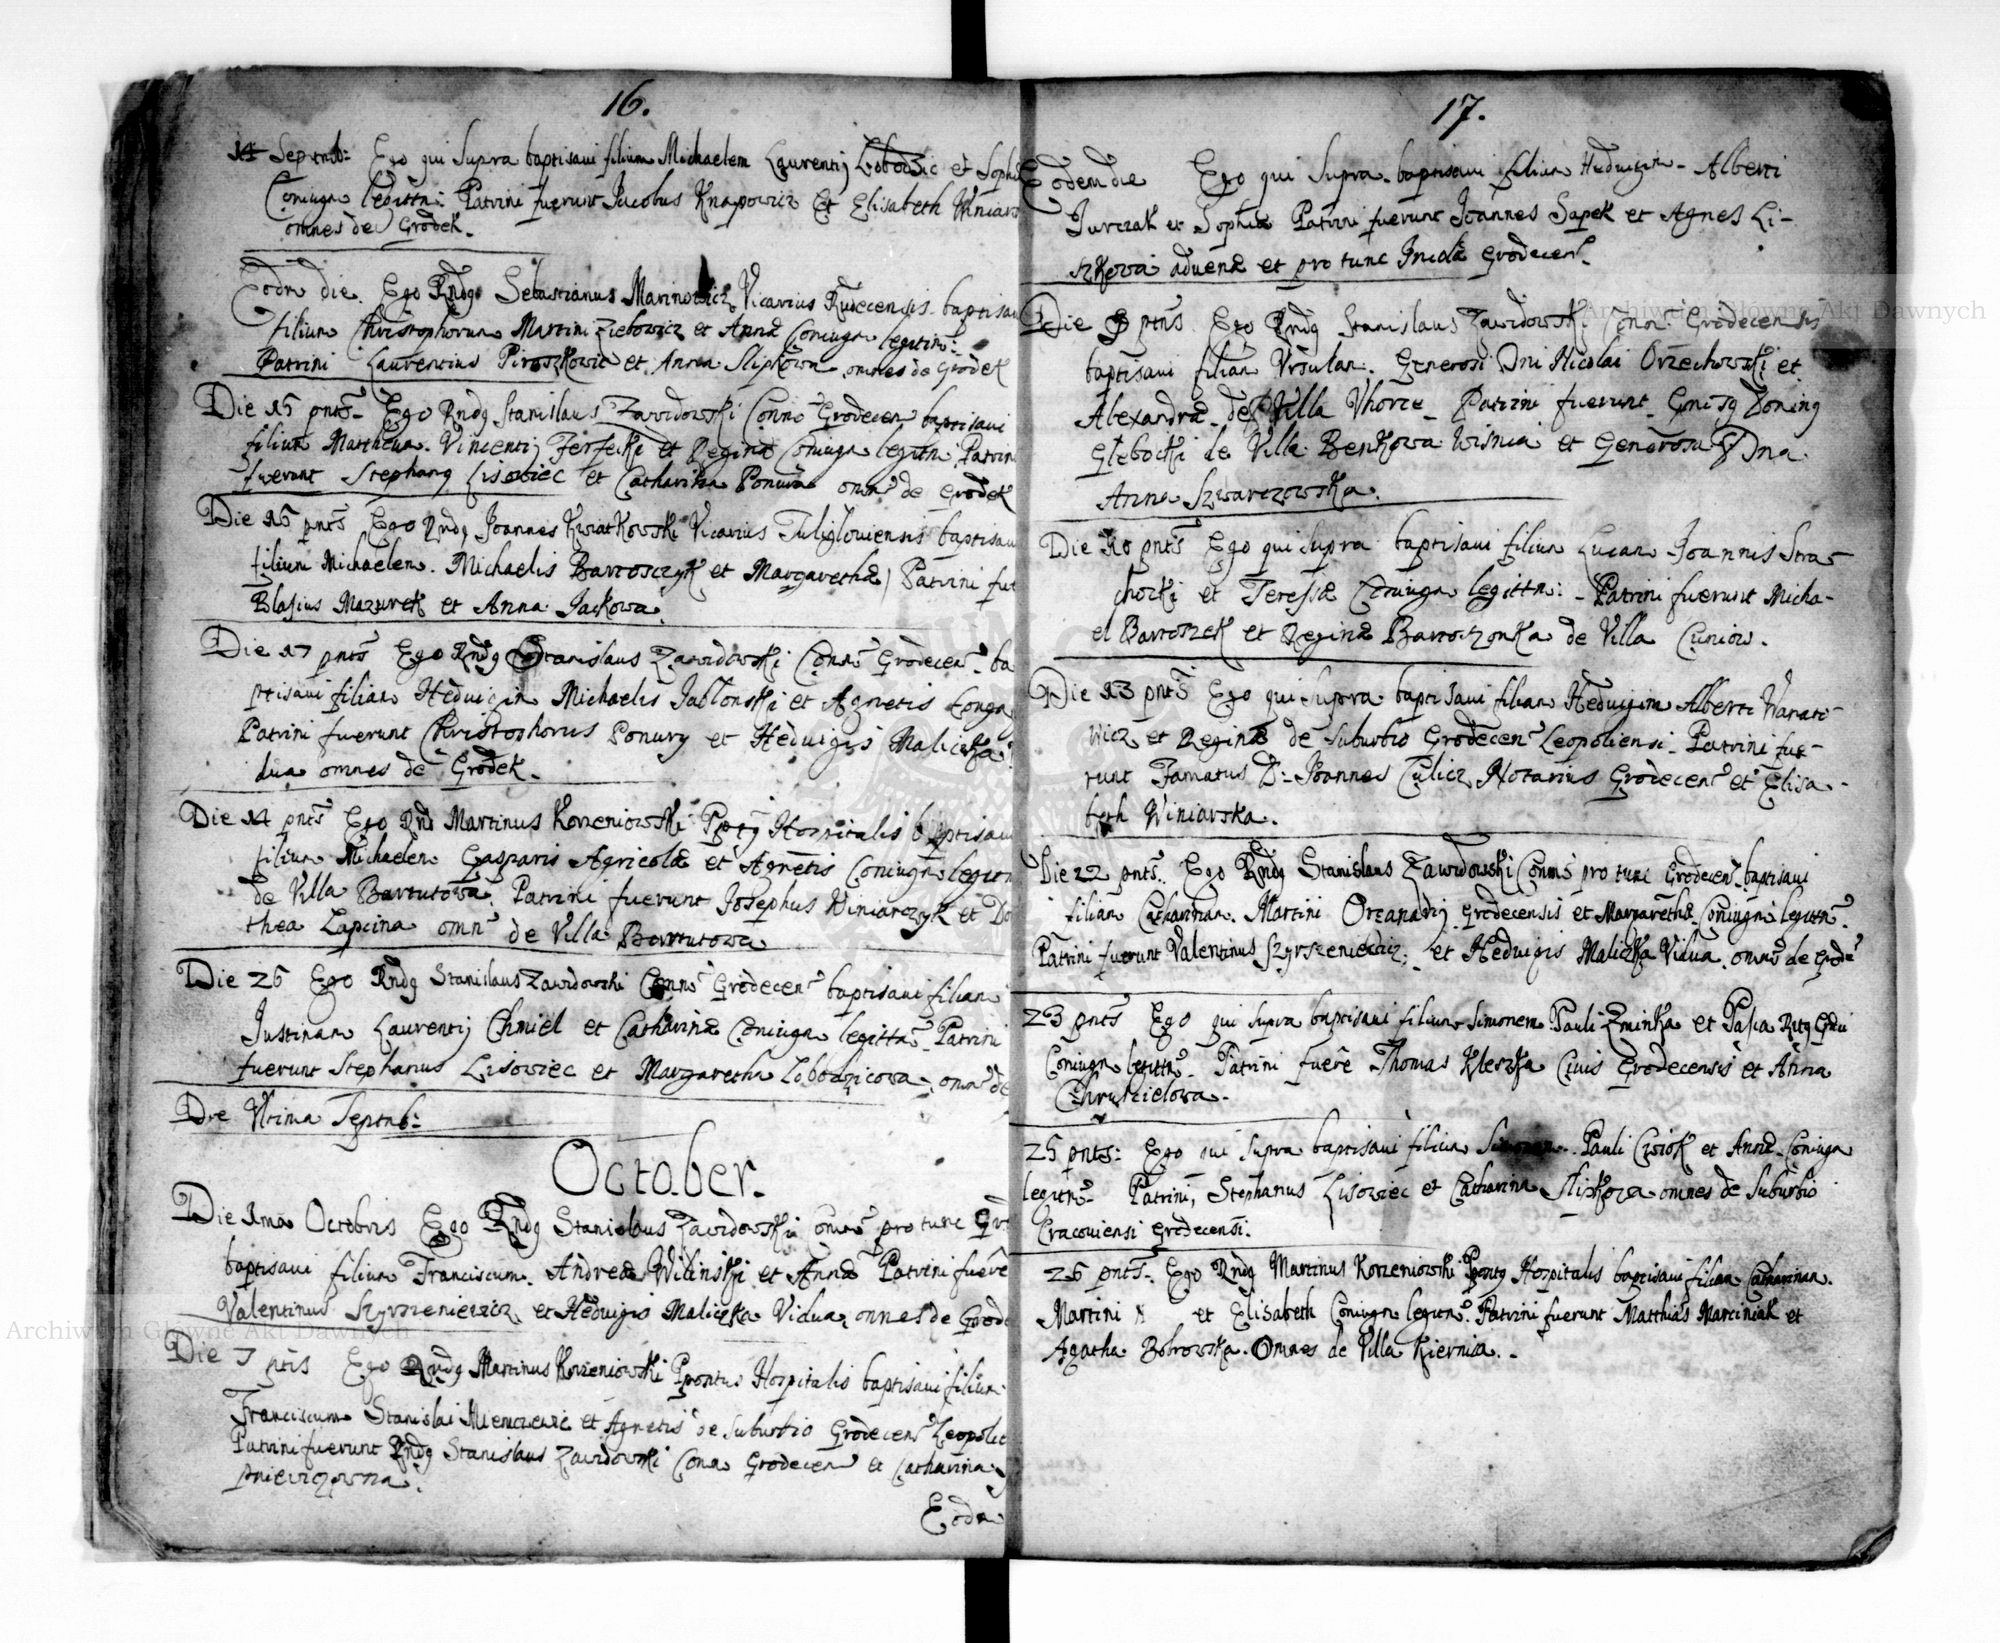 16.
14 Septmb: Ego qui Supra baptisavi filium Michaelem Laurentij Lobodzic et Soph
Coniugu legittm: Patrini fuerunt Jacobus Knapowicz Et Elisabeth Winiars
omnes de Grodek.
Eodm die. Ego Rndg Sebastianus Marinowicz Vicarius Rudecensis baptisau
filium Christophorum Martini Ziebowicz et Annæ Coniugu legitim:
Patrini Laurentius Piroszkowic et Anna Slipkown omnes de Grodek
Die 15 pnts Ego Rndg Stanislaus Zawidowski Conno Grodecen baptisaui
filium Mattheum Vincentij Ferfecki et Reginæ Coniugu legitm Patrin
fuerunt Stephang Lisowiec et Catharina Ponura omn de Grodek
Die 16 pnts Ego Rndg Joannes Kwiatkowski Vicarius Tuliglouiensis baptisau
filium Michaelem. Michaelis Bartosczyk et Margarethæ Patrini fue
Blasius Mazurek et Anna Jackowa.
Die 17 pnts Ego Rndg Stanislaus Zawidowski Conn Grodecen ba
ptisaui filiam Hedvigim Michaelis Jablonski et Agnetis Conga
Patrini fuerunt Christophorus Ponury et Hedvigis Maliczka
dua omnes de Grodek.
Die 14 pnts Ego Rnd Martinus Korzeniowski Hospitalis baptisaui
filium Michaelem Gasparis Agricolæ et Agnetis Coniugu legitm
de Villa Bartutowa. Patrini fuerunt Josephus Winiarczyk et Do
thea Lapcina omn de Villa Bartutowa
Die 26 Ego Rndg Stanislaus Zawidowski Conn Grodecen baptisaui filiam
Justinam Laurentij Chmiel et Catharinæ Coniugu legittm Patrini
fuerunt Stephanus Lisowiec et Margaretha Lobodzicowa omn de
Septmb:
October.
Die 1ma Octobris Ego Rndg Stanislaus Zawidowski Conn pro tunc Gro
baptisaui filium Franciscum. Andreæ Wilinski et Annæ Patrini fuere
Valentinus Szyrszeniewicz et Hedvigis Maliczka Vidua, omnes de Grode
Die 7 ptis Ego Rndg Martinus Korzeniowski Ppontus Hospitalis baptisaui filium
Franciscum Stanislai et Agnetis de Suburbio Grodecen Leopolie
Patrini fuerunt Rndg Stanislaus Zawidowski Conn Grodecen et Catharina
pnieviczowna.
Eodm
17.
Eodem die Ego qui Supra baptisaui filiam Hedvigim Alberti
Jurczak et Sophiæ Patrini fuerunt Joannes Sapek et Agnes Li-
szkowa advenæ et pro tunc Incolæ Grodecen.
Die 9 ptns Ego Rndg Stanislaus Zawidowski Conn: Grodecensis
baptisaui filiam Vrsulam. Generosi Dni Nicolai Orzechowski et
Alexandræ de Villa Vhorce Patrini fuerunt
Glebocki de Villa Benkowa Wisnia et Generosa Dna
Anna Szwarczowska.
Die 10 pnts Ego qui Supra baptisaui filium Lucam Joannis Stra-
chocki et Teressæ Coniugu legittm: Patrini fuerunt Micha-
el Bartoszek et Reginæ Bartoszonka de Villa Cuniow.
Die 13 pnts Ego qui Supra baptisaui filiam Hedvigim Alberti Wanato-
wicz et Reginæ de Suburbio Grodecen Leopoliensi Patrini fue-
runt Famatus D: Joannes Culicz Notarius Grodecen et Elisa-
beth Winiarska.
Die 22 pnts. Ego Rndg Stanislaus Zawidowski Conns pro tunc Grodecen baptisaui
filiam Catharinam. Martini Organarij Grodecensis et Margarethæ Coniugu legittm.
Patrini fuerunt Valentinus Szyrszeniewicz; et Hedvigis Maliczka Vidua, omns de Grod
23 pnts Ego qui Supra baptisaui filium Simonem Pauli Zminka et Pasia
Coniugu legittm. Patrini fuere Thomas Kleszka Ciuis Grodecensis et Anna
Chruscielowa.
25 pnts: Ego qui Supra baptisaui filium Simonem. Pauli Cisiok et Annæ Coniugu
legitm Patrini, Stephanus Lisowiec et Catharina Slipkowa omnes de Suburbio
Cracouiensi Grodecensi.
26 pnts. Ego Rndg Martinus Korzeniowski Ppontg Hospitalis baptisaui filiam Catharinam.
Martini N et Elisabeth Coniugu legittm. Patrini fuerunt Matthias Marciniak et
Agatha Bobrowska. Omnes de Villa Kiernica.
Archiwum Główne Akt Dawnych
Archiwum Główne Akt Dawnych